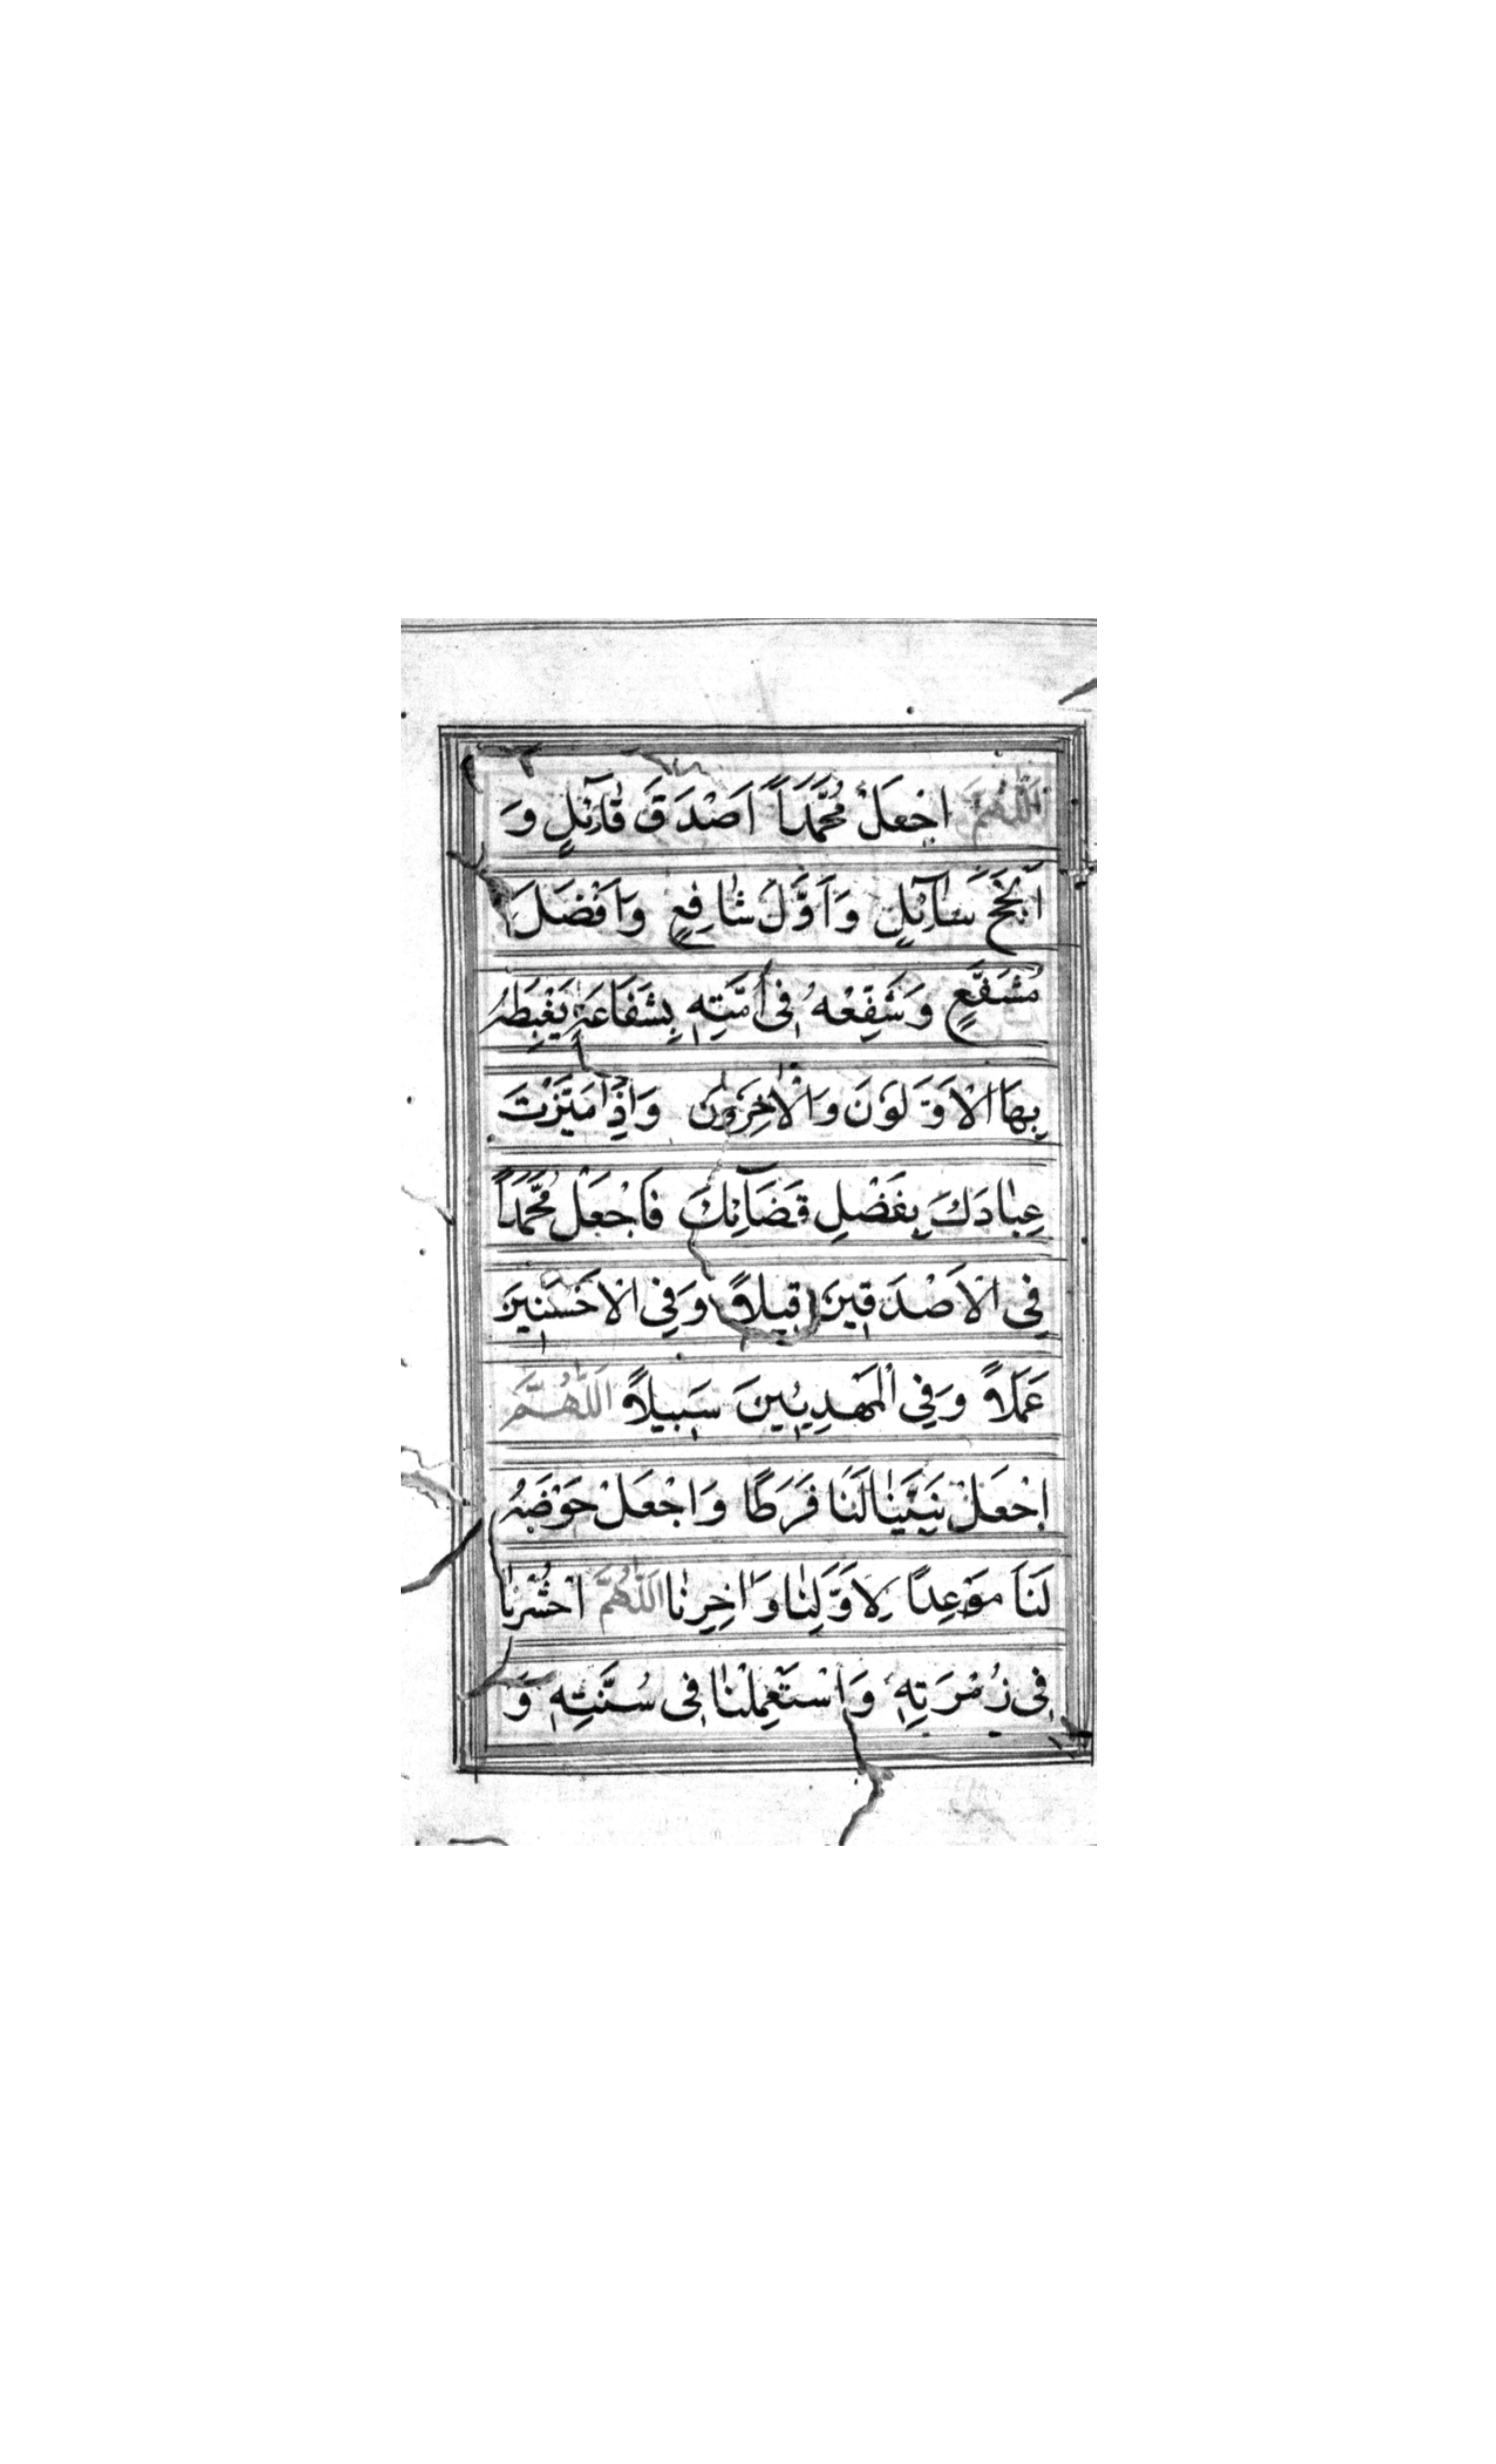 اَللّٰهُمَّ اجْعَلْ مُحَمَّدًا اَصْدَقَ قَآئِلٍ وَ
اَنْجَحَ سَآئِلٍ وَاَوَّلَ شَافِعٍ وَاَفْضَلَ
مُشَفَّعٍ وَشَفِّعْهُ فِی اُمَّتِهٖ بِشَفَاعَةٍ يَغْبِطُهُ
بِهَا الْاَوَّلُوْنَ وَالْاٰخِرُوْنَ وَاِذَا مَيَّزْتَ
عِبَادَكَ بِفَضْلِ قَضَآئِكَ فَاجْعَلْ مُحَمَّدًا
فِی الْاَصْدَقِيْنَ قِيْلًا وَفِی الْاَحْسَنِيْنَ
عَمَلًا وَفِی الْمَهْدِيِّيْنَ سَبِيْلًا اَللّٰهُمَّ
اجْعَلْ نَبِيَّنَا لَنَا فَرَطًا وَاجْعَلْ حَوْضَهُ
لَنَا مَوْعِدًا لِاَوَّلِنَا وَاٰخِرِنَا اَللّٰهُمَّ احْشُرْنَا
فِی زُمْرَتِهٖ وَاسْتَعْمِلْنَا فِی سُنَّتِهٖ وَ